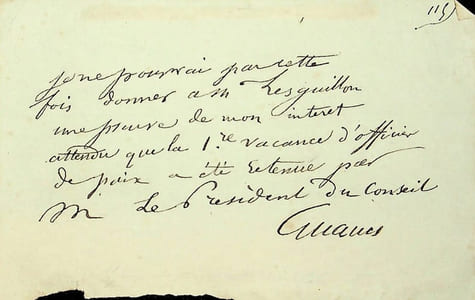 115
je ne pourrai pas cette
fois donner a M Lesguillon
une preuve de mon interet
attendu que la 1.re vacance d'officier
de paix a été retenue par
M Le President du Conseil